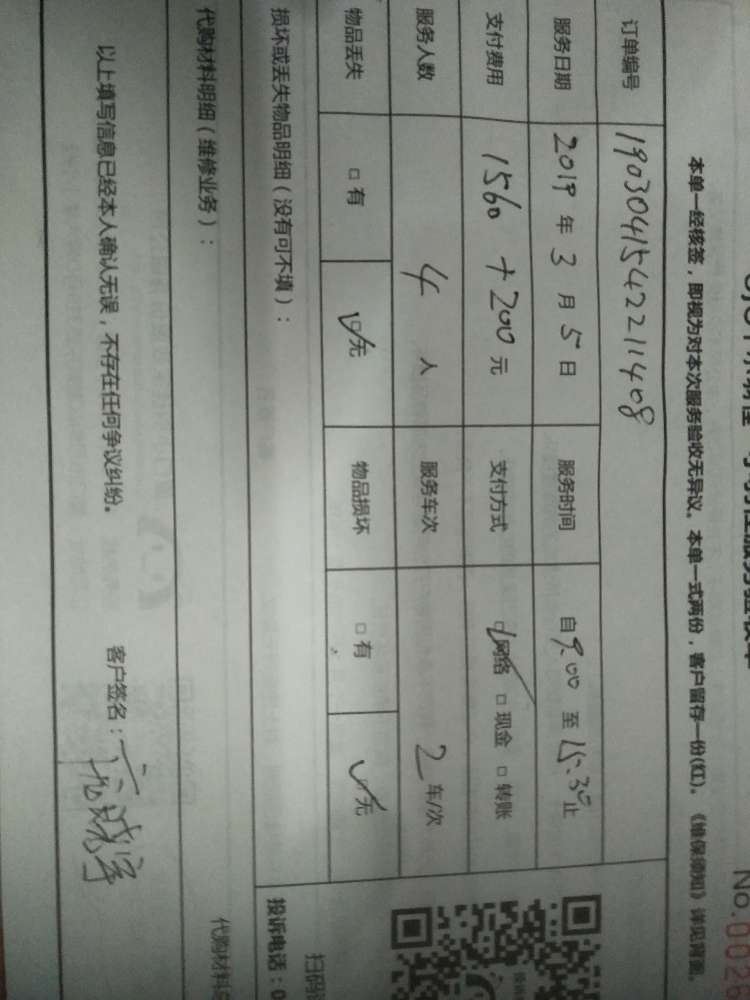 No.0026
本单一经核签，即视为对本次服务验收无异议。本单一式两份，客户留存一份(红)。《维保须知》详见背面。
订单编号 19030415422211408
服务日期 2019 年 3 月 5 日 服务时间 自 9:00 至 15:30 止
支付费用 1560 + 200 元 支付方式 ☑网络 □现金 □转账
服务人数 4 人 服务车次 2 车/次
物品丢失 □有 ☑无 物品损坏 □有 ☑无
损坏或丢失物品明细（没有可不填）：
扫码
投诉电话：0
代购材料明细（维修业务）：
代购材料
以上填写信息已经本人确认无误，不存在任何争议纠纷。 客户签名：